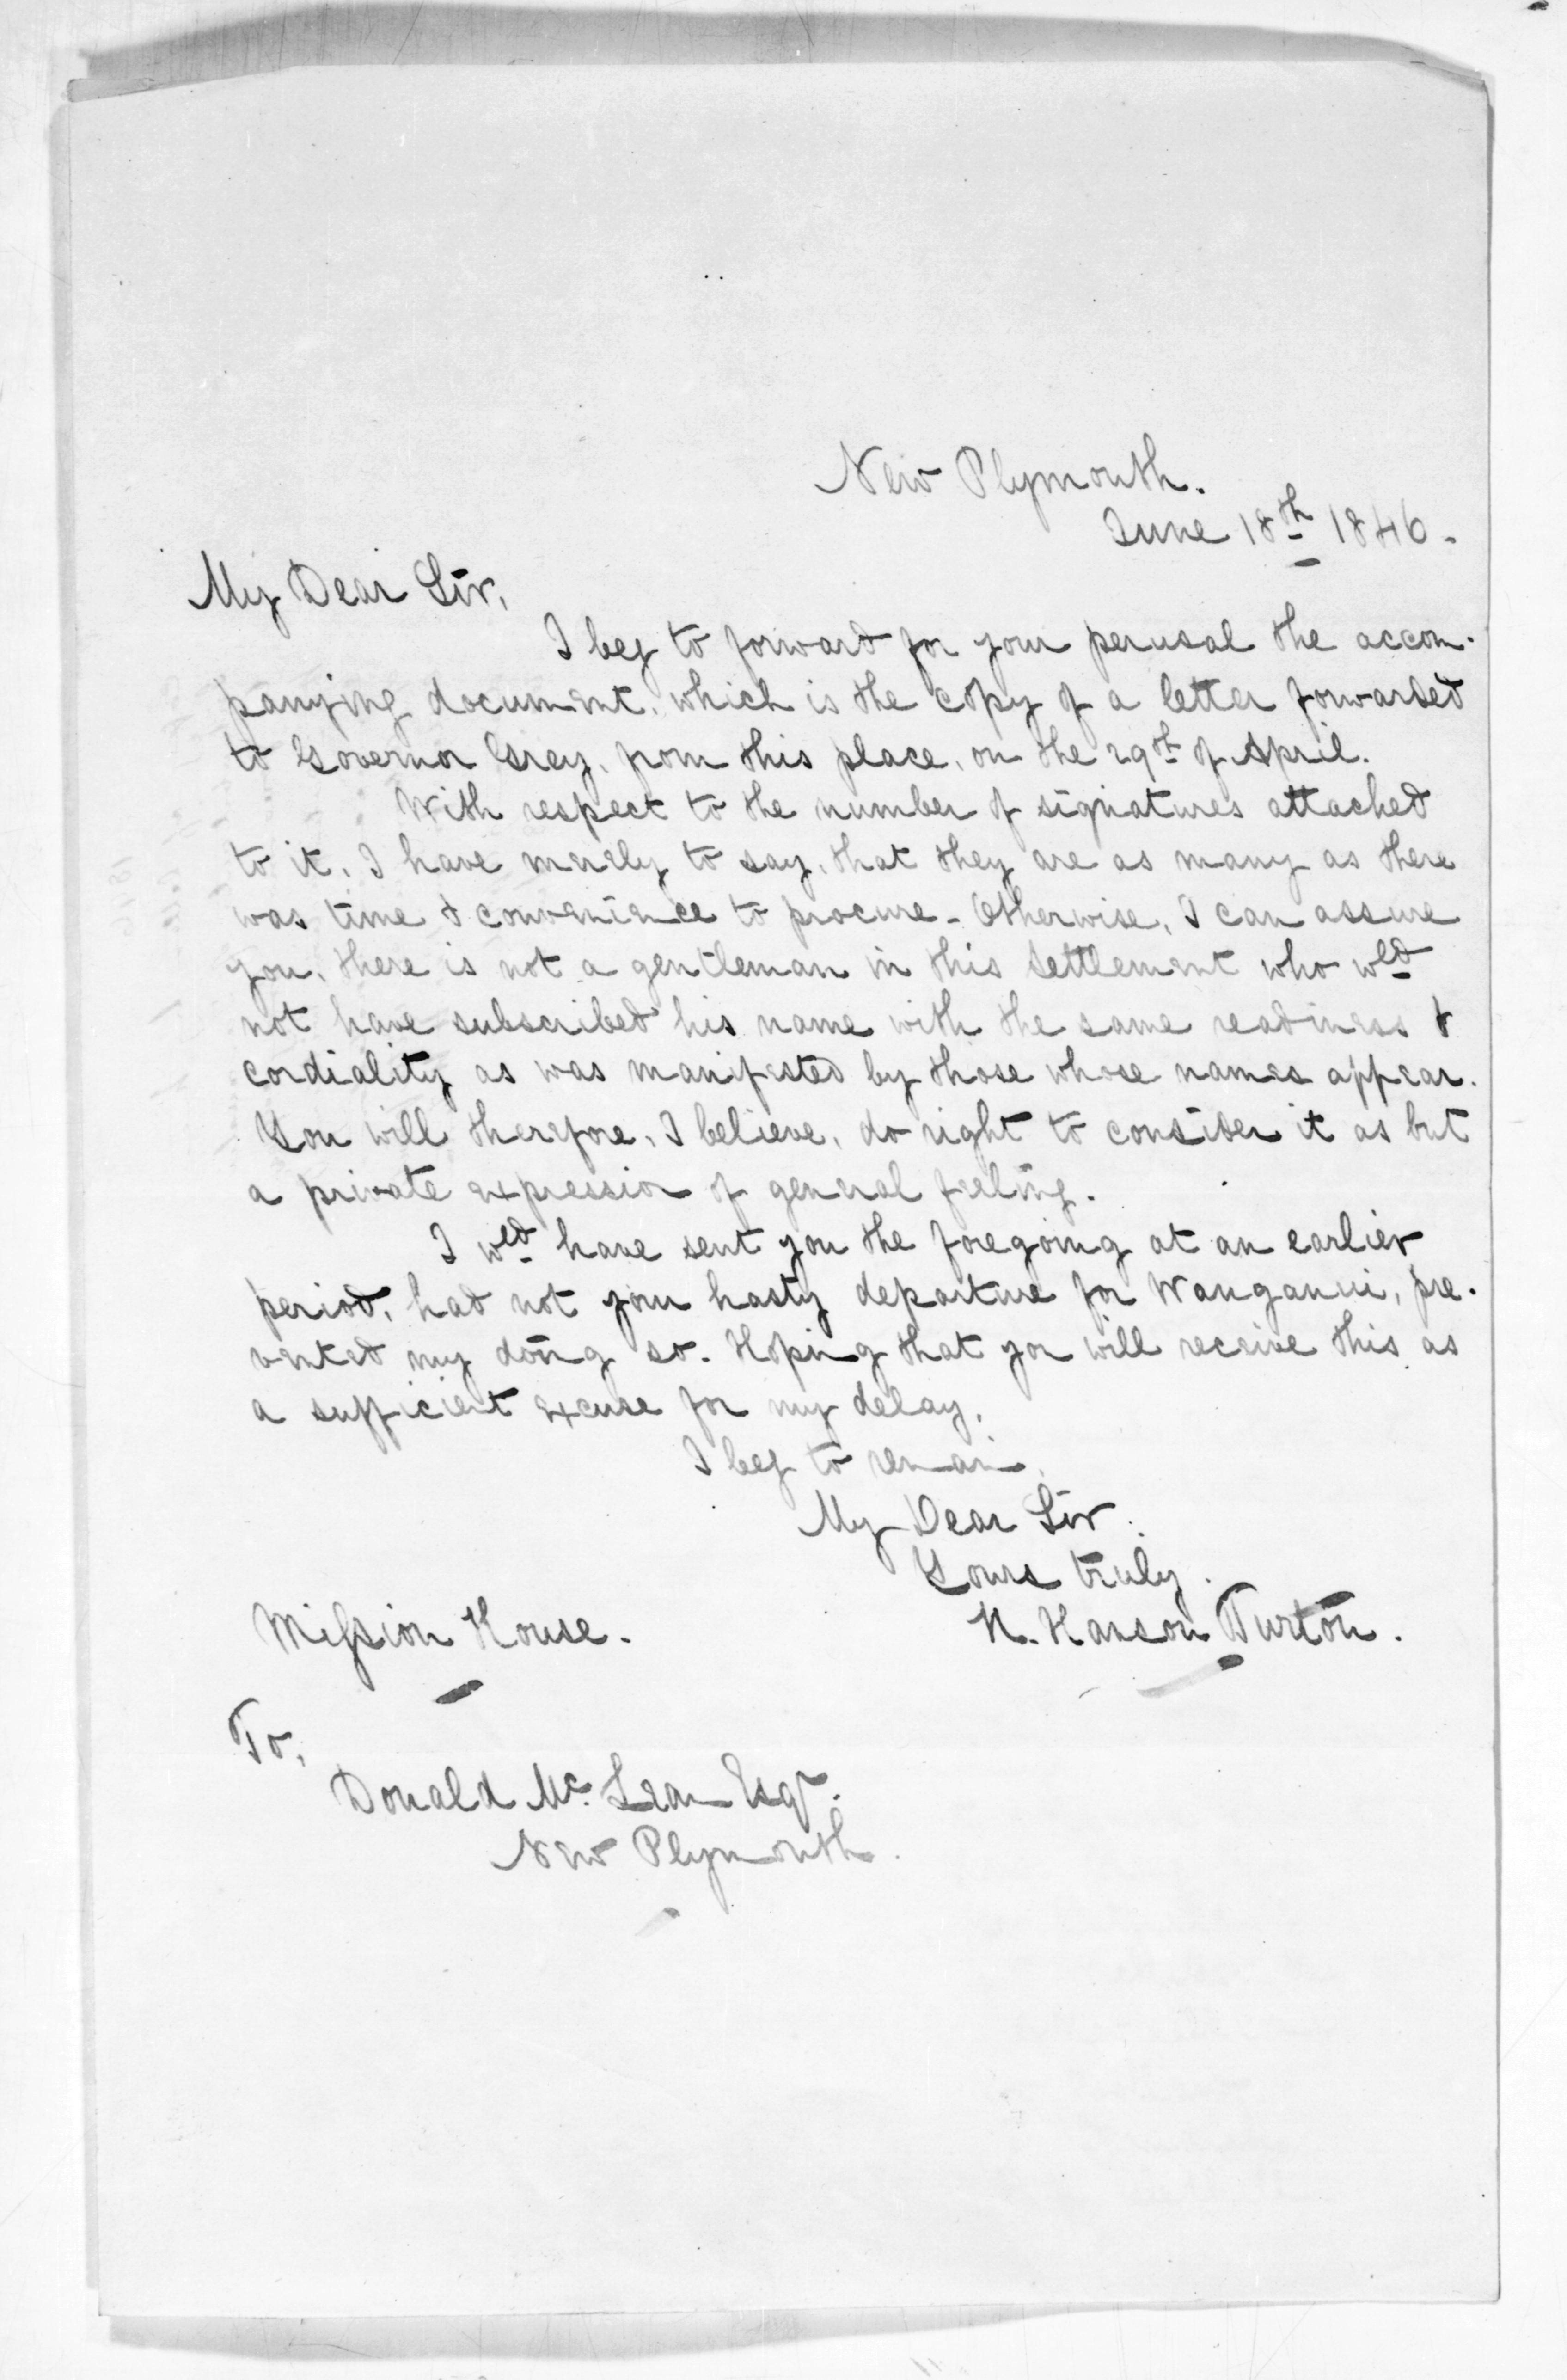 New Plymouth.
June 18th 1846.
My Dear Sir,
I beg to forward for your perusal the accom-
panying document, which is the copy of a letter forwarded
to Governor Grey, from this place, on the 29th of April.
With respect to the number of signatures attached
to it, I have merely to say, that they are as many as there
was time & convenience to procure - Otherwise, I can assure
you, there is not a gentleman in this Settlement who wld
not have subscribed his name with the same readiness &
cordiality as was manifested by those whose names appear.
You will therefore, I believe, do right to consider it as but
a private expression of general feeling.
I wld have sent you the foregoing at an earlier
period, had not your hasty departure for Wanganui, pre-
vented my doing so. Hoping that you will receive this as
a sufficient excuse for my delay,
I beg to remain,
My Dear Sir.
Yours truly.
Mission House. H. Hanson Turton.
To,
Donald Mc. Lean Esqr.
New Plymouth.